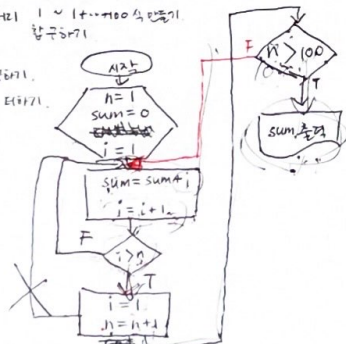 1 ~ 1+···+100 식 만들기.
합 구하기
하기.
더하기.
시작
n = 1
sum = 0
i = 1
sum = sum + i
i = i + 1
F
i > n
T
i = 1
n = n + 1
F
n > 100
T
sum 출력